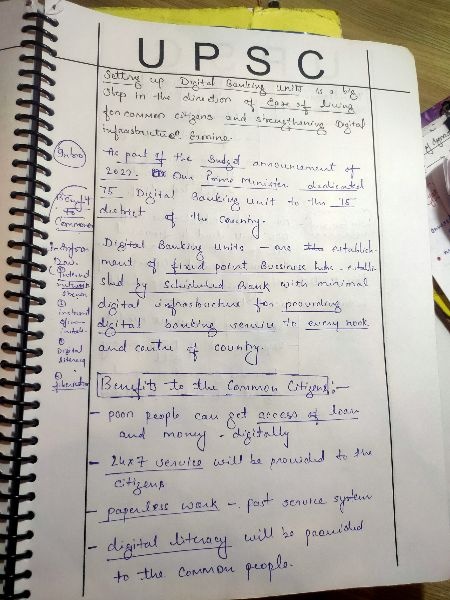 UPSC
Setting up Digital Banking Units is a big
step in the direction of Ease of living
for common citizens and strengthening Digital
infrastructure
Intro
As part of the Budget announcement of
2022. Our Prime Minister dedicated
75 Digital Banking unit to the 75
district of the country.
Benefit
to
Common
Digital Banking Units - are establish-
ment of fixed point Bussiness hube - establi-
shed by Scheduled Bank with minimal
digital infrastructure for providing
digital banking service to every nook
and centre of country.
Digital
literacy
Benefits to the Common Citizens :-
- poor people can get access of loan
and money - digitally
- 24x7 service will be provided to the
citizens
- paperless work - fast service system
- digital literacy will be provided
to the common people.